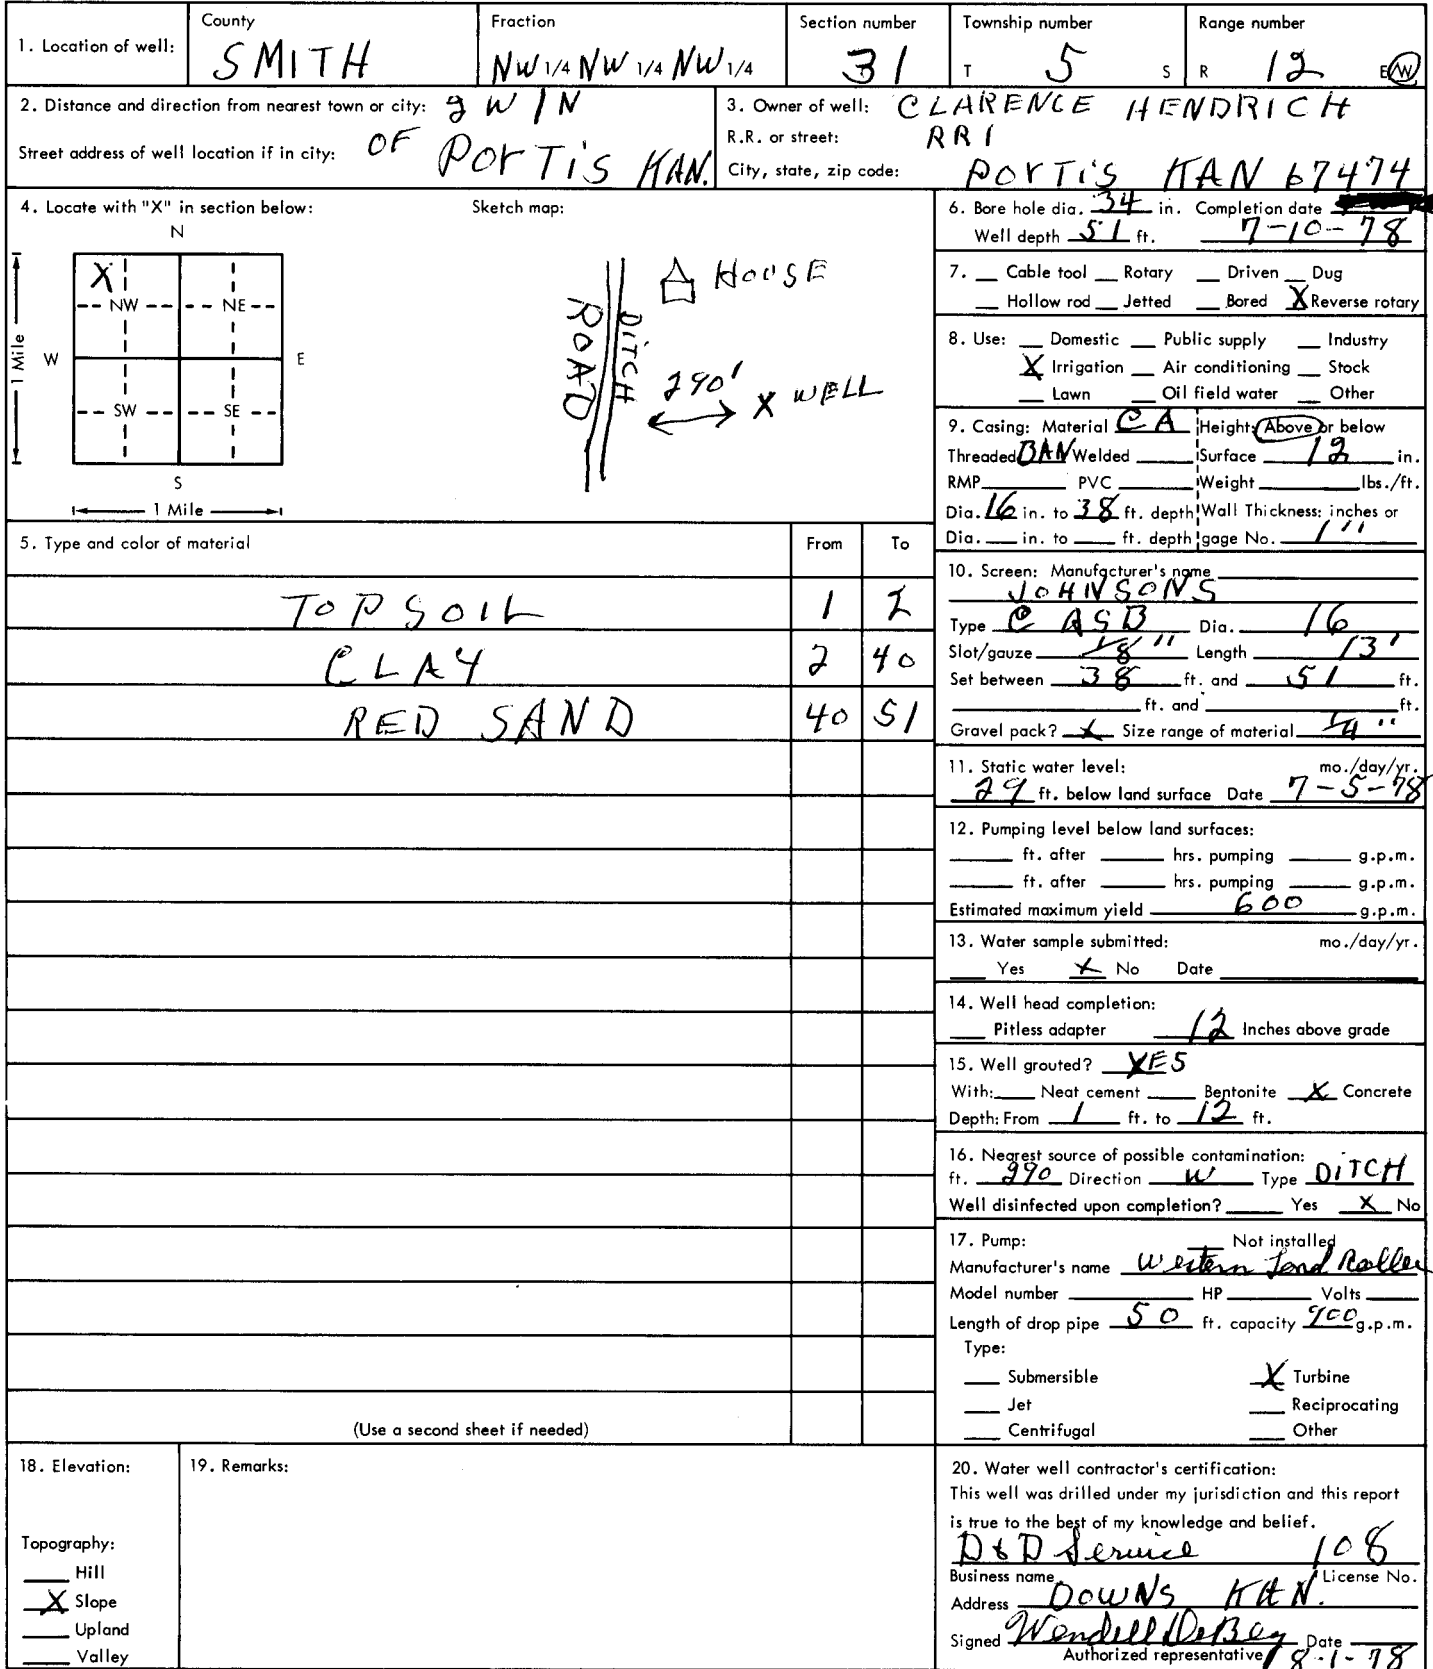 1. Location of well: County SMITH Fraction NW 1/4 NW 1/4 NW 1/4 Section number 31 Township number T 5 S Range number R 12 E/W
2. Distance and direction from nearest town or city: 2 W 1 N
OF PORTIS KAN.
Street address of well location if in city:
3. Owner of well: CLARENCE HENDRICH
R.R. or street: RR1
City, state, zip code: PORTIS KAN 67474
4. Locate with "X" in section below:
N
X
NW NE
W E
SW SE
S
1 Mile
1 Mile
Sketch map:
HOUSE
ROAD
DITCH
290'
X WELL
5. Type and color of material From To
TOPSOIL 1 2
CLAY 2 40
RED SAND 40 51
(Use a second sheet if needed)
6. Bore hole dia. 34 in. Completion date
Well depth 51 ft. 7-10-78
7. Cable tool Rotary Driven Dug
Hollow rod Jetted Bored X Reverse rotary
8. Use: Domestic Public supply Industry
X Irrigation Air conditioning Stock
Lawn Oil field water Other
9. Casing: Material C A Height: Above or below
Threaded BAN Welded Surface 12 in.
RMP PVC Weight lbs./ft.
Dia. 16 in. to 38 ft. depth Wall Thickness: inches or
Dia. in. to ft. depth gage No. 1"
10. Screen: Manufacturer's name
JOHNSONS
Type C ASB Dia. 16
Slot/gauze 1/8" Length 13'
Set between 38 ft. and 51 ft.
ft. and ft.
Gravel pack? X Size range of material 1/4"
11. Static water level: mo./day/yr.
29 ft. below land surface Date 7-5-78
12. Pumping level below land surfaces:
ft. after hrs. pumping g.p.m.
ft. after hrs. pumping g.p.m.
Estimated maximum yield 600 g.p.m.
13. Water sample submitted: mo./day/yr.
Yes X No Date
14. Well head completion:
Pitless adapter 12 Inches above grade
15. Well grouted? YES
With: Neat cement Bentonite X Concrete
Depth: From 1 ft. to 12 ft.
16. Nearest source of possible contamination:
ft. 290 Direction W Type DITCH
Well disinfected upon completion? Yes X No
17. Pump: Not installed
Manufacturer's name Western Land Roller
Model number HP Volts
Length of drop pipe 50 ft. capacity 900 g.p.m.
Type:
Submersible X Turbine
Jet Reciprocating
Centrifugal Other
18. Elevation:
Topography:
Hill
X Slope
Upland
Valley
19. Remarks:
20. Water well contractor's certification:
This well was drilled under my jurisdiction and this report
is true to the best of my knowledge and belief.
D & D Service 108
Business name License No.
Address DOWNS KAN.
Signed Wendell DeBey Date 8-1-78
Authorized representative